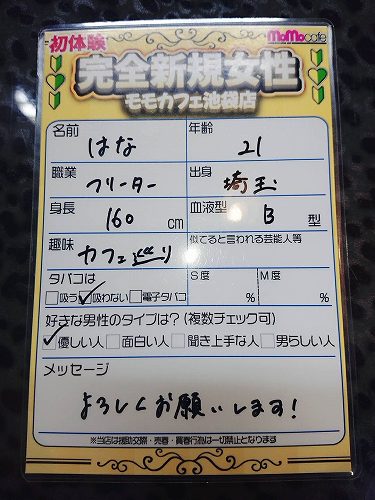 初体験
MoMo cafe
完全新規女性
モモカフェ池袋店
名前 はな 年齢 21
職業 フリーター 出身 埼玉
身長 160 cm 血液型 B 型
趣味 カフェ巡り 似てると言われる芸能人等
タバコは S度 M度
□吸う ☑吸わない □電子タバコ % %
好きな男性のタイプは?(複数チェック可)
☑優しい人 □面白い人 □聞き上手な人 □男らしい人
メッセージ
よろしくお願いします!
※当店は援助交際・売春・買春行為は一切禁止となります